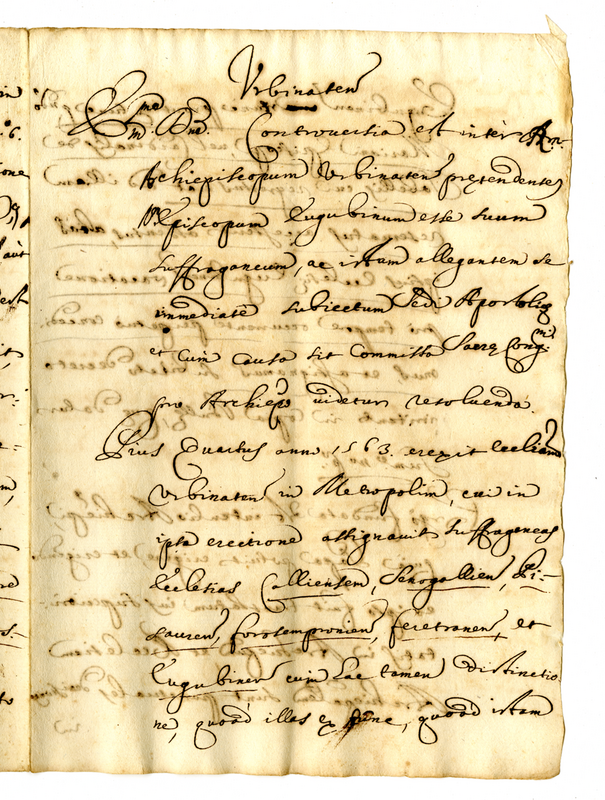 Urbinaten
Em̃e D. Dne. Controversia est inter Arm.
Archiepiscopum Urbinaten prętendentem
Episcopum Eugubinum esse suum
suffraganeum, ac istam allegantem se
immediatè subiectum Sedi Apostolicę
et cum causa sit commissa Sacrę Cong.ni
pro Archiepõ videtur resoluenda.
Pius Quartus anno 1563. erexit Eccliam
Urbinaten in Metropolim, cui in
ipsa erectione assignavit suffraganeas
Ecclesias Calliensem, Senogallien, Pi-
sauren, forosempronien, feretranen, et
Eugubinen cum hac tamen distinctio
ne, quoad illas ex nunc, quoad istam